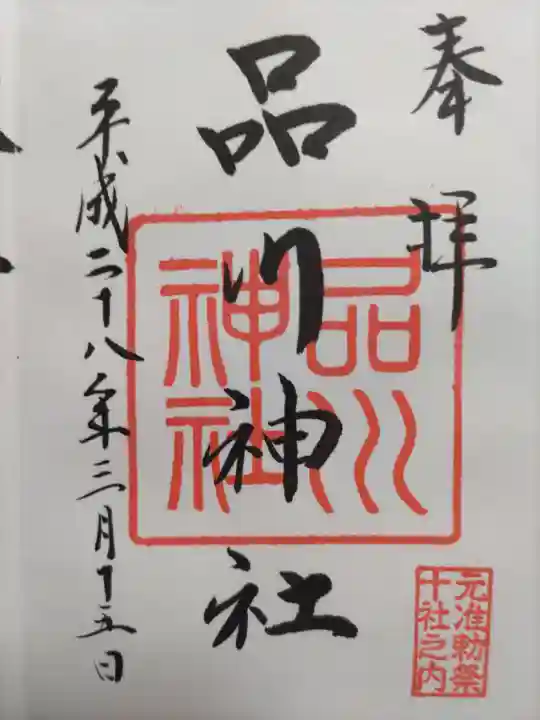 奉拝
品川神社
平成二十八年三月十五日
品川
神社
元准勅祭
十社之内